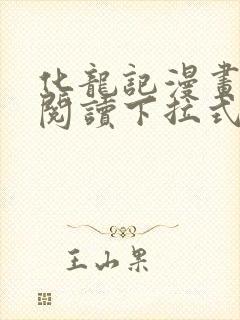 化龍記漫畫
閱讀下拉式
王山果